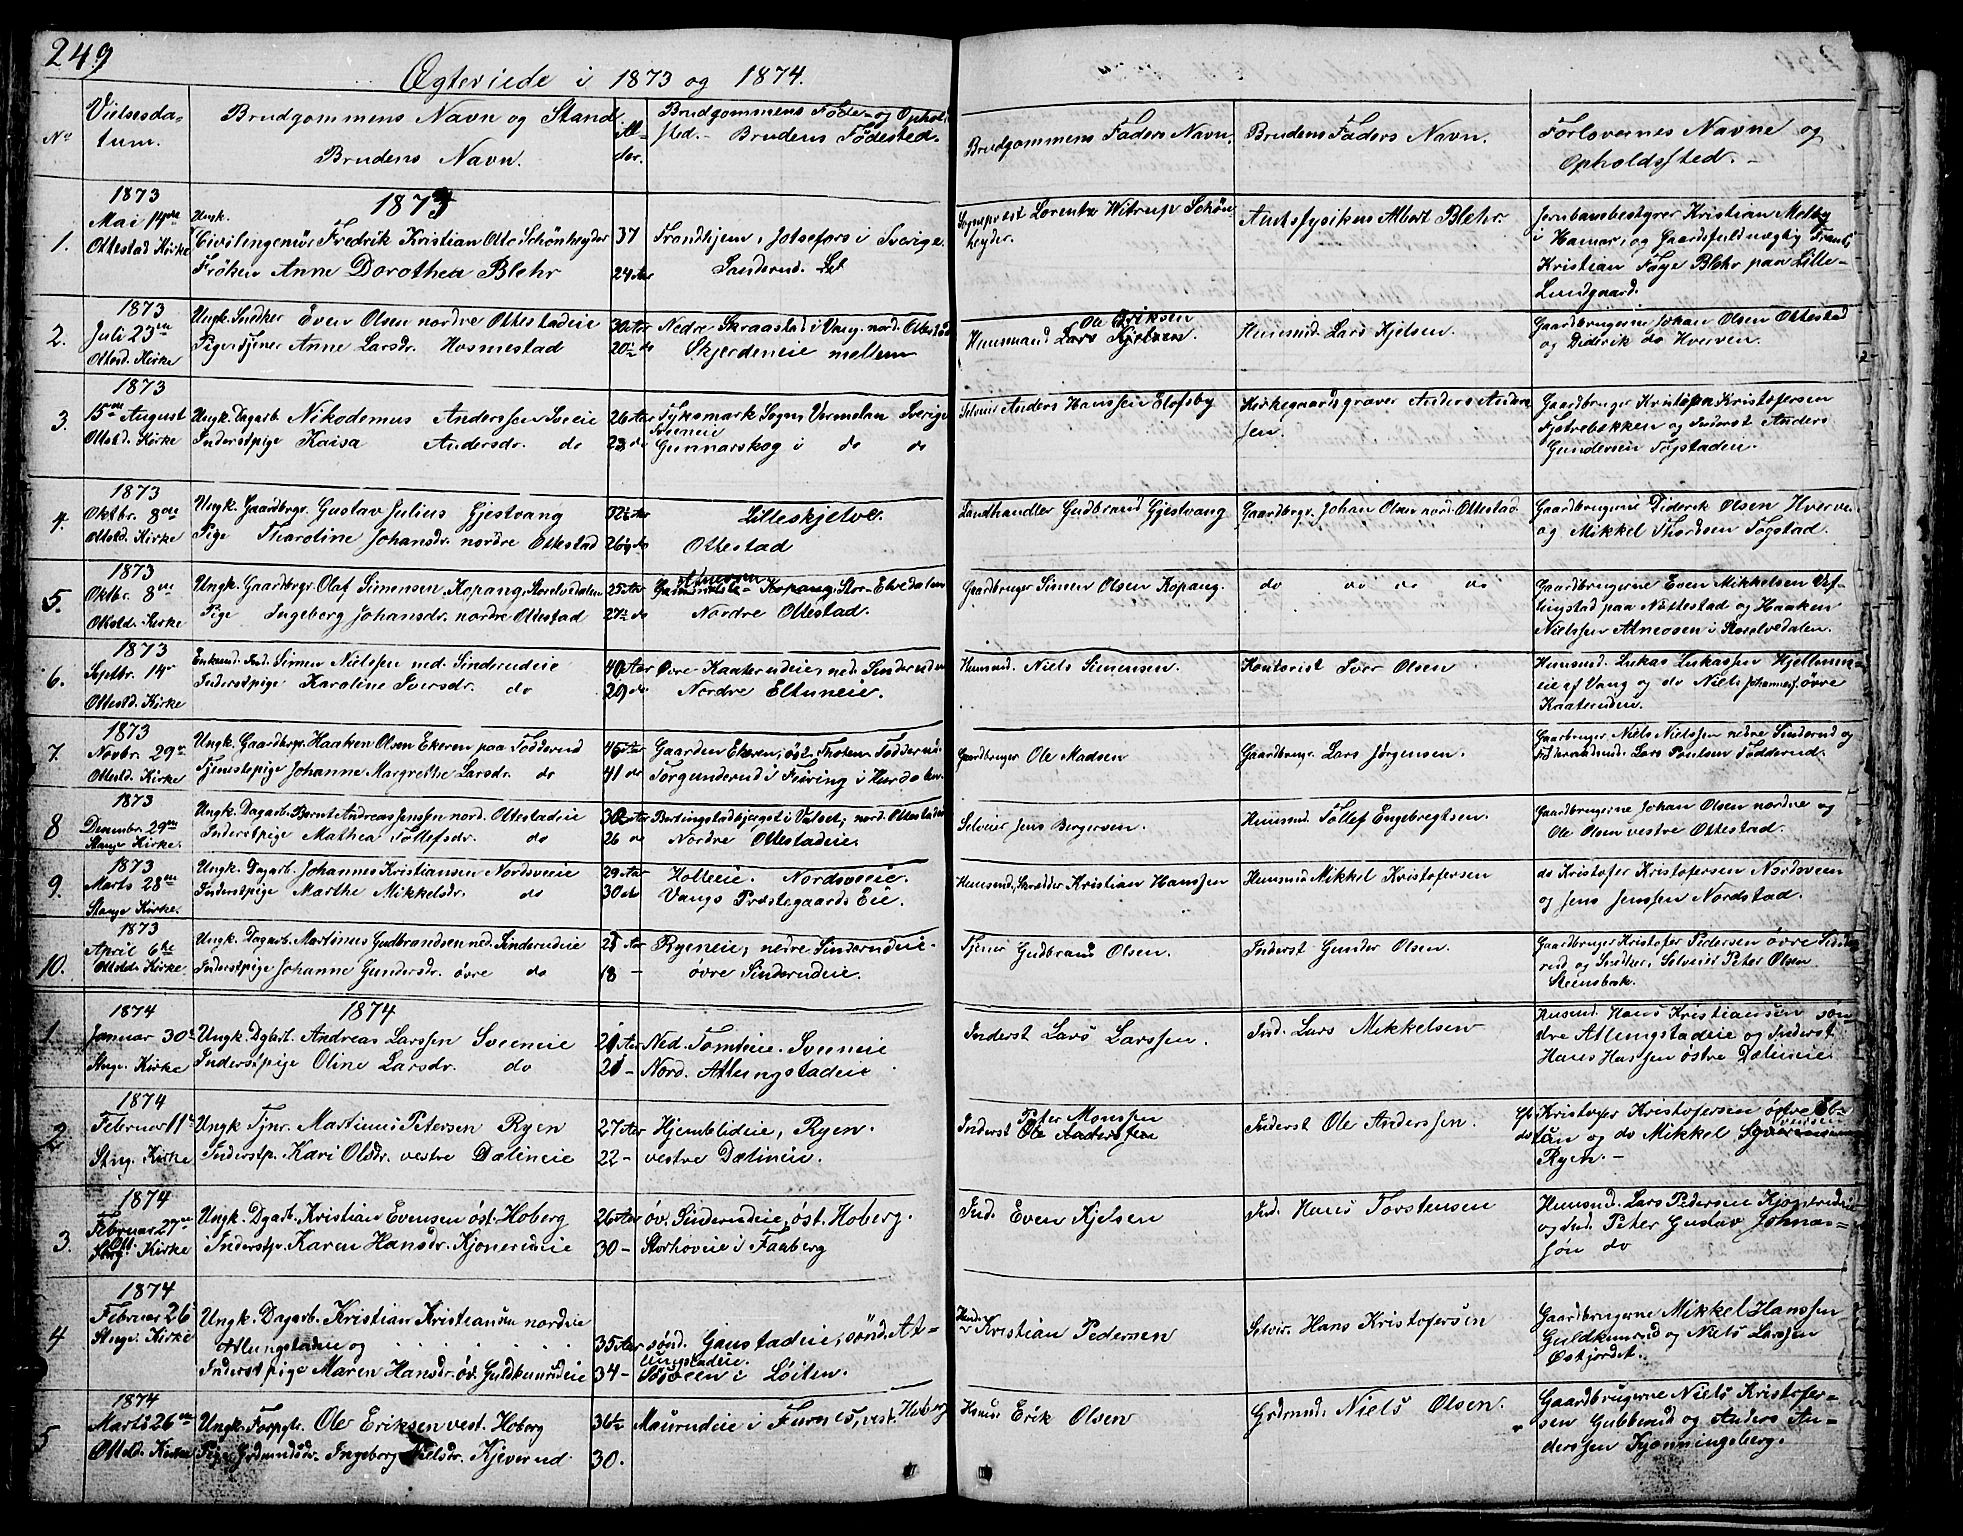 249
Ægteviede i 1873 og 1874.
No
Vielsesda-
tum.
Brudgommens Navn og Stand.
Brudens Navn.
Al-
der.
Brudgommens Føde- og Ophol-
sted. - Brudens Fødested.
Brudgommens Faders Navn.
Brudens Faders Navn.
Forlovernes Navne og
Opholdssted. -
1873
1.
1873
Mai 14de
Ottestad Kirke
Ungk.
Civilingeniør Fredrik Kristian Otto Schönheyder
Frøken Anne Dorothea Blehr
37
24 Aar
Trondhjem, Jotsefors i Sverige.
Sanderud.
Sogneprest Lorentz Witrup Schön
heyder.
Amtsfysikus Albert Blehr.
Jernbanebestyrer Kristian Melby
i Hamar, og Gaardsfuldmægtig Frants
Kristian Faye Blehr paa Lille-
Lundgaard.
2.
1873
Juli 23de
Ottesd. Kirke
Ungk. Snedker Even Olsen nordre Ottestadeie
Pige Tjener Anne Larsdr. Hosmestad
30 Aar
20½ do
Nedre Skraastad i Vang. nord. Ottestad
Skjerdeneie mellem
Ole Eriksen
Huusmand Lars Kjelsen.
Huusmd. Lars Kjelsen.
Gaardbrugerne Johan Olsen Ottestad
og Diderik do Hverven.
3.
1873
15de August
Ottstd. Kirke
Ungk. Dagarb. Nikodemus Anderssen Sveeie
Inderstpige Kaisa Andersdr. do
26 Aar
23 do
Fyksmark Sogn, Vermelan Sverige
Sveeneie
Gunnarskog i do do
Selveier Anders Hanssen Elofsby
Kirkegaardsgraver Anders Anders
sen.
Gaardbruger Kristofer Kristofersen
Fjetrebakken og Inderst Anders
Gunderien Fogstaden.
4.
1873
Oktbr. 8de
Ottstd. Kirke
Ungk. Gaardbrgr. Gustav Julius Gjestvang
Pige Tharoline Johansdr. nordre Ottestad
32½ Aar
26¼ do
Lilleskjetve.
Ottestad
Landhandler Gudbrand Gjestvang
Gaardbrgr. Johan Olsen nord. Ottestad.
Gaardbrugerne Diderik Olsen Hverve
og Mikkel Thordsen Fogstad.
5.
1873
Oktbr. 8de
Ottstd. Kirke
Ungk. Gaardbrgr. Olaf Simensen Kopang, Storelvedalen
Pige Ingeborg Johansdr. nordre Ottestad
25 Aar
27½ do
Kopang, Stor-Elvedalen
Nordre Ottestad.
Gaardbruger Simen Olsen Kopang.
do do do do
Gaardbrugerne Even Mikkelsen Vef-
lingstad paa Nøttestad og Haaken
Nielssen Atneosen i Storelvedalen.
6.
1873
Septbr. 14de
Ottestd. Kirke
Enkmd. Ind. Simen Nielssen ned. Sinderudeie
Inderstpige Karoline Iversdr. do
40 Aar
29 do
Øvre Kaaterudeie, ned. Sinderudeie
Nordre Eltuneie.
Huusmd. Niels Simensen.
Kontorist Iver Olsen
Huusmd. Lukas Lukassen Hjellum-
eie af Vang og do Niels Johannesf. øvre
Kaateruden.
7.
1873
Novbr. 29de
Ottestd. Kirke
Ungk. Gaardbrgr. Haaken Olsen Ekeren paa Fodderud
Tjenestepige Johanne Margrethe Larsdr. do
45 Aar
41 do
Gaarden Ekeren, øst. Thoten, Fodderud.
Torgunderud i Feiring i Hurdalen.
Gaardbruger Ole Madsen
Gaardbrugr. Lars Jørgensen.
Gaarbruger Niels Nielssen nedre Sinderud og
Lars Paulsen Fodderud.
8
1873
Decembr. 29de
Stange Kirke.
Ungk. Dagarb. Bernt Andreas Jenssen nord. Ottestadeie
Inderstpige Mathea Tollefsdr. do
30 Aar
26 do
Berlingstadhjeget i Valset, nord. Ottestadeie
Nordre Ottestadeie
Selveier Jens Bergersen.
Huusmd. Tollef Engebregtsen.
Gaardbrugerne Johan Olsen nordre og
Ole Olsen vestre Ottestad.
9.
1873
Marts 28de
Stange Kirke.
Ungk. Dagarb. Johannes Kristiansen Nordsveeie
Inderstpige Marthe Mikkelsdr. do
29 Aar
30 do
Holleeie. Nordsveeie.
Vangs Præstegaards Eie.
Huusmd. Skrædder Kristian Hanssen
Huusmd. Mikkel Kristofersen
do Kristofer Kristofersen Nordsveen
og Jens Jenssen Nordstad.
10.
1873
April 6te
Ottstd. Kirke
Ungk. Dagarb. Martinus Gudbrandsen ned. Sinderudeie
Inderstpige Johanne Gundersdr. øvre do
21 Aar
18 -
Ryeneie, nedre Sinderudeie.
øvre Sinderudeie.
Tjener Gudbrand Olsen.
Inderst Gunder Olsen.
Gaardbruger Kristofer Pedersen øvre Sinde
rud og Snedker, Selveier Peter Olsen
Steensbak.
1874
1.
1874
Januar 30te
Stnge. Kirke
Ungk. Dgarb. Andreas Larssen Sveeneie
Inderstpige Oline Larsdr. do
21 Aar
21 -
Ned. Tomteie. Sveeneie
Nord. Atlungstadeie
Inderst Lars Larssen.
Ind. Lars Mikkelsen
Huusmd. Hans Kristiansen søn-
dre Atlungstadeie og Inderst
Hans Hanssen østre Dælineie.
2
1874
Februar 11te
Stng. Kirke
Ungk Tjnr. Martinus Petersen Ryen
Inderstp. Kari Olsdr. vestre Dælineie
27 Aar
22 -
Hjemblideie, Ryen.
vestre Dælineie.
Peter Monssen
Inderst Ole Anderssen
Inderst Ole Anderssen.
Kristofer Kristofersen østre
og do Mikkel
Ryen. -
3.
1874
Februar 27de
Ott.
Stng. Kirke
Ungk. Dgarb. Kristian Evensen øst. Hoberg
Inderstp. Karen Hansdr. Kjonerudeie
26 Aar
30 -
øv. Sinderudeie, øst. Hoberg.
Storhoveie i Faaberg
Ind. Even Kjelsen
Ind. Hans Torstensen
Huusmd. Lars Pedersen Kjonerudeie
og Ind. Peter Gustav Johnas-
søn do
4
1874
Februar 26
Stnge. Kirke
Ungk. Dagarb. Kristian Kristiansen nordre
Atlungstadeie og . . . . . .
Inderstpige Maren Hansdr. øv. Guldkunrudeie
35 Aar
34 -
sønd. Gaustadeie, sønd. At-
lungstadeie.
Sørveen i Løiten.
Kristian Pedersen
Selveir. Hans Kristofersen
Gaardbrugerne Mikkel Hanssen
Guldkunrud og Niels Larssen
Østjordet.
5
1874
Marts 26de
Ottstd. Kirke
Ungk. Forpgtr. Ole Eriksen vest. Hoberg
Pige Grdmandsdr. Ingeborg Nielsdr. Kjeverud
36½
30.
Maurudeie i Furnes, vest. Hoberg
Huusm. Erik Olsen
Grdmnd. Niels Olsen.
Gaardbrugerne Niels Kristofer-
sen Gubberud og Anders An-
derssen Kjønningsberg.